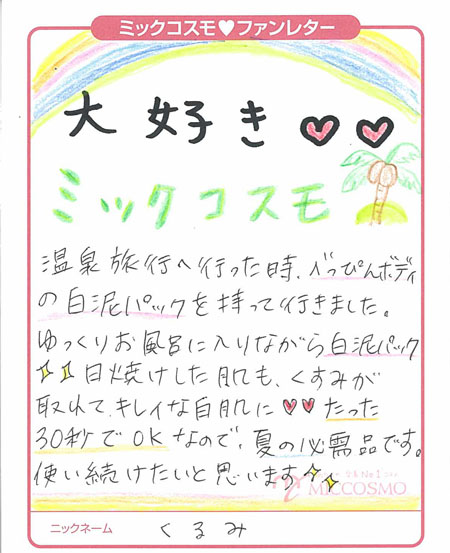 ミックコスモ♥ファンレター
大好き♡♡
ミックコスモ
温泉旅行へ行った時、べっぴんボディ
の白泥パックを持って行きました。
ゆっくりお風呂に入りながら白泥パック
日焼けした肌も、くすみが
取れて、キレイな白肌に♡♡たった
30秒でOKなので、夏の必需品です。
使い続けたいと思います
MICCOSMO
ニックネーム くるみ